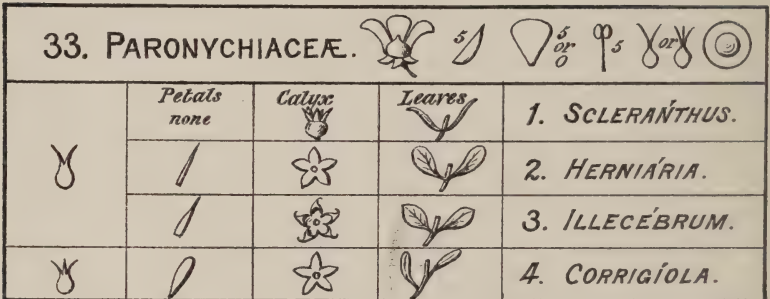 33. PARONYCHIACEÆ. 5 5 or 0 5 or
Petals none Calyx Leaves 1. SCLERÁNTHUS.
2. HERNIÁRIA.
3. ILLECÉBRUM.
4. CORRIGÍOLA.